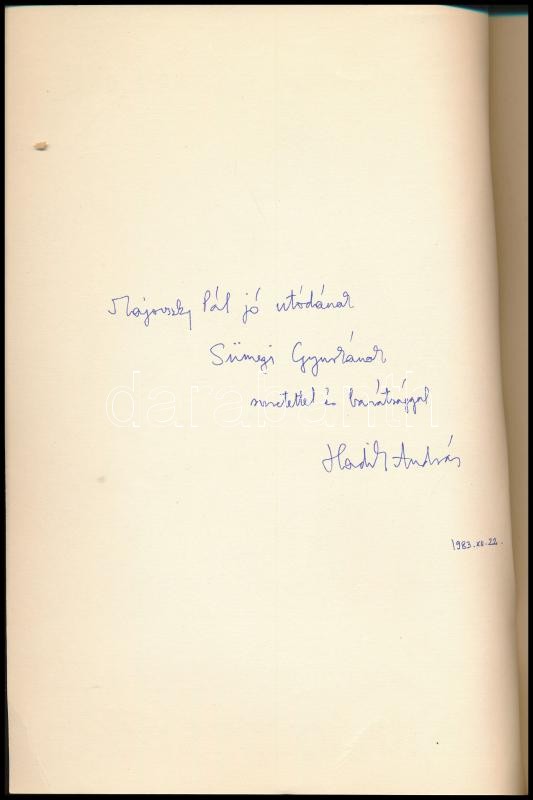 Májovszky Pál jó utódának
Sümegi Gyurkának
szeretettel és barátsággal
Hadik András
1983.XII.22.
darabanth